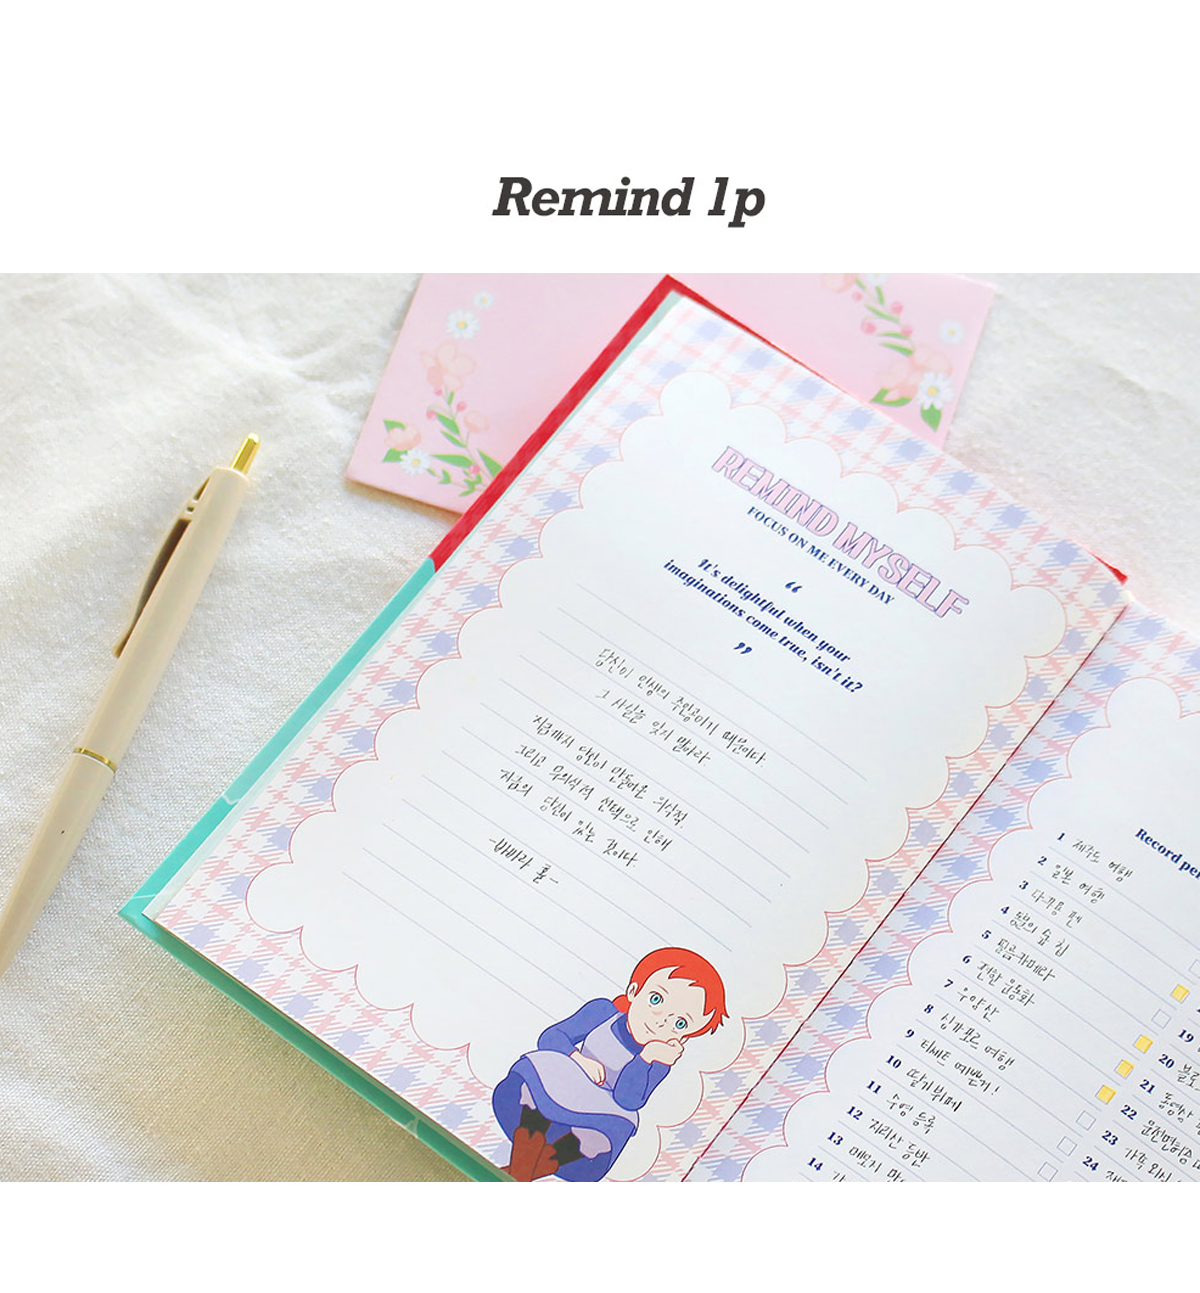 Remind 1p
REMIND MYSELF
FOCUS ON ME EVERY DAY
“
It's delightful when your
imaginations come true, isn't it?
”
당신이 인생의 주인공이기 때문이다.
그 사실을 잊지 말아라.
지금까지 당신이 만들어온 의식적,
그리고 무의식적 선택으로 인해
지금의 당신이 있는 것이다.
-바바라 홀-
Record
1 제주도 여행
2 일본 여행
3 다꾸용 펜
4 숲 집
5 필름카메라
6 전안 운동화
7 우양산
8 싱가포르 여행
9 티세트 예쁜거!
10 딸기뷔페
11 수영 등록
12 지리산 등반
13 메모지
14
19
20
21 동영상
22 운전면허증
23 가족 외식
24